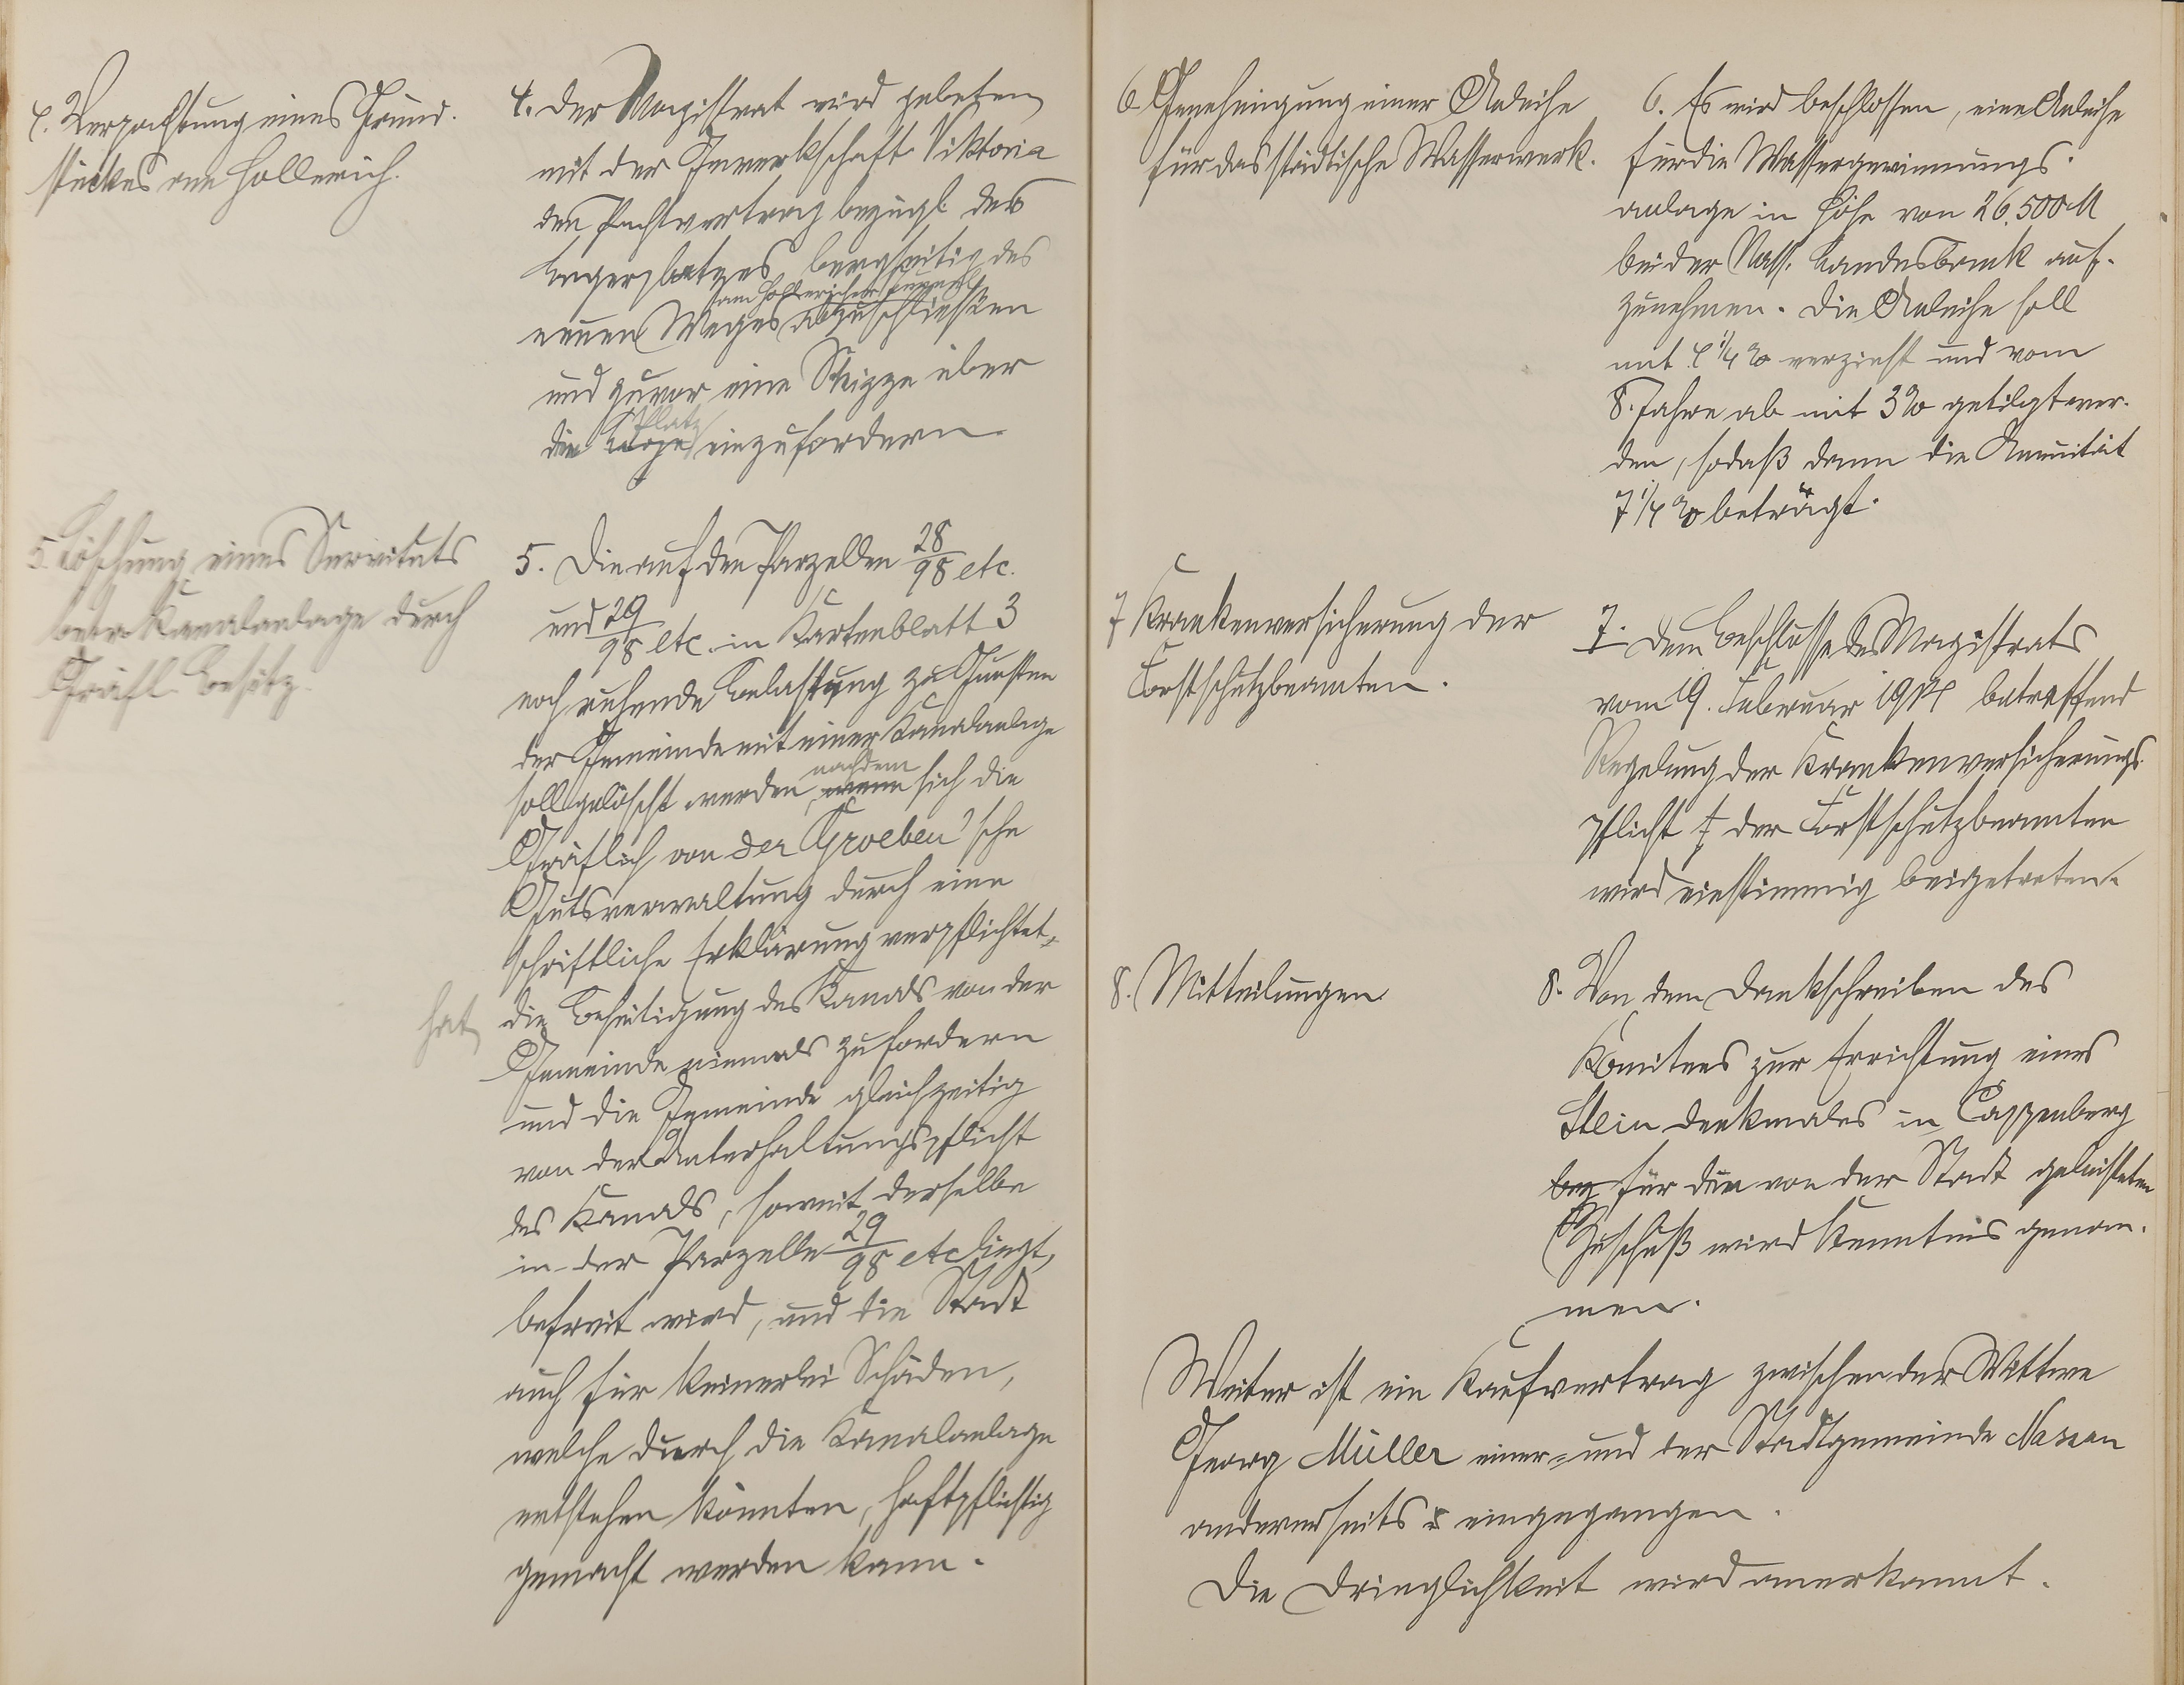 4. Verpachtung eines Grund-
stückes am Hollerich.
4. Der Magistrat wird gebeten
mit der Gewerkschaft Viktoria
den Pachtvertrag bezügl. des
Lagerplatzes bergseitig des
am Hollericher
neuen Weges abzuschließen
und zuvor eine Skizze über
Platz
die Lage einzufordern
5. Löschung eines Servituts
betr. Kanalanlage durch
Gräfl. Besitz.
5. Die auf den Parzellen 28/98 etc.
und 29/98 etc. in Kartenblatt 3
noch ruhende Belastung zu Gunsten
der Gemeinde mit einer Kanalanlage
nachdem
soll gelöscht werden, wenn sich die
Gräflich von der Groeben'sche
Gutsverwaltung durch eine
schriftliche Erklärung verpflichtet,
hat die Beseitigung des Kanals von der
Gemeinde niemals zu fordern
und die Gemeinde gleichzeitig
von der Unterhaltungspflicht
des Kanals, soweit derselbe
in der Parzelle 29/98 etc liegt,
befreit wird, und die Stadt
auch für keinerlei Schäden,
welche durch die Kanalanlage
entstehen könnten, haftpflichtig
gemacht werden kann.
6 Genehmigung einer Anleihe
für das städtische Wasserwerk.
6. Es wird beschlossen, eine Anleihe
für die Wassergewinnungs-
anlage in Höhe von 26.500 M
bei der Nass. Landesbank auf-
zunehmen. Die Anleihe soll
mit 4 1/4 % verzinst und vom
8. Jahre ab mit 3 % getilgt wer-
den, sodaß dann die Annuität
7 1/4 % beträgt.
7 Krankenversicherung der
Forstschutzbeamten.
7. Dem Beschlusse des Magistrats
vom 19. Februar 1914 betreffend
Regelung der Krankenversicherungs-
pflicht der Forstschutzbeamten
wird einstimmig beigetreten.
8. Mitteilungen
8. Von dem Dankschreiben des
Komitees zur Errichtung eines
Stein denkmales in Cappenberg
für den von der Stadt geleisteten
Zuschuß wird Kenntnis genom-
men.
Weiter ist ein Kaufvertrag zwischen der Wittwe
Georg Müller einer- und der Stadtgemeinde Nassau
andererseits eingegangen.
Die Dringlichkeit wird anerkannt.